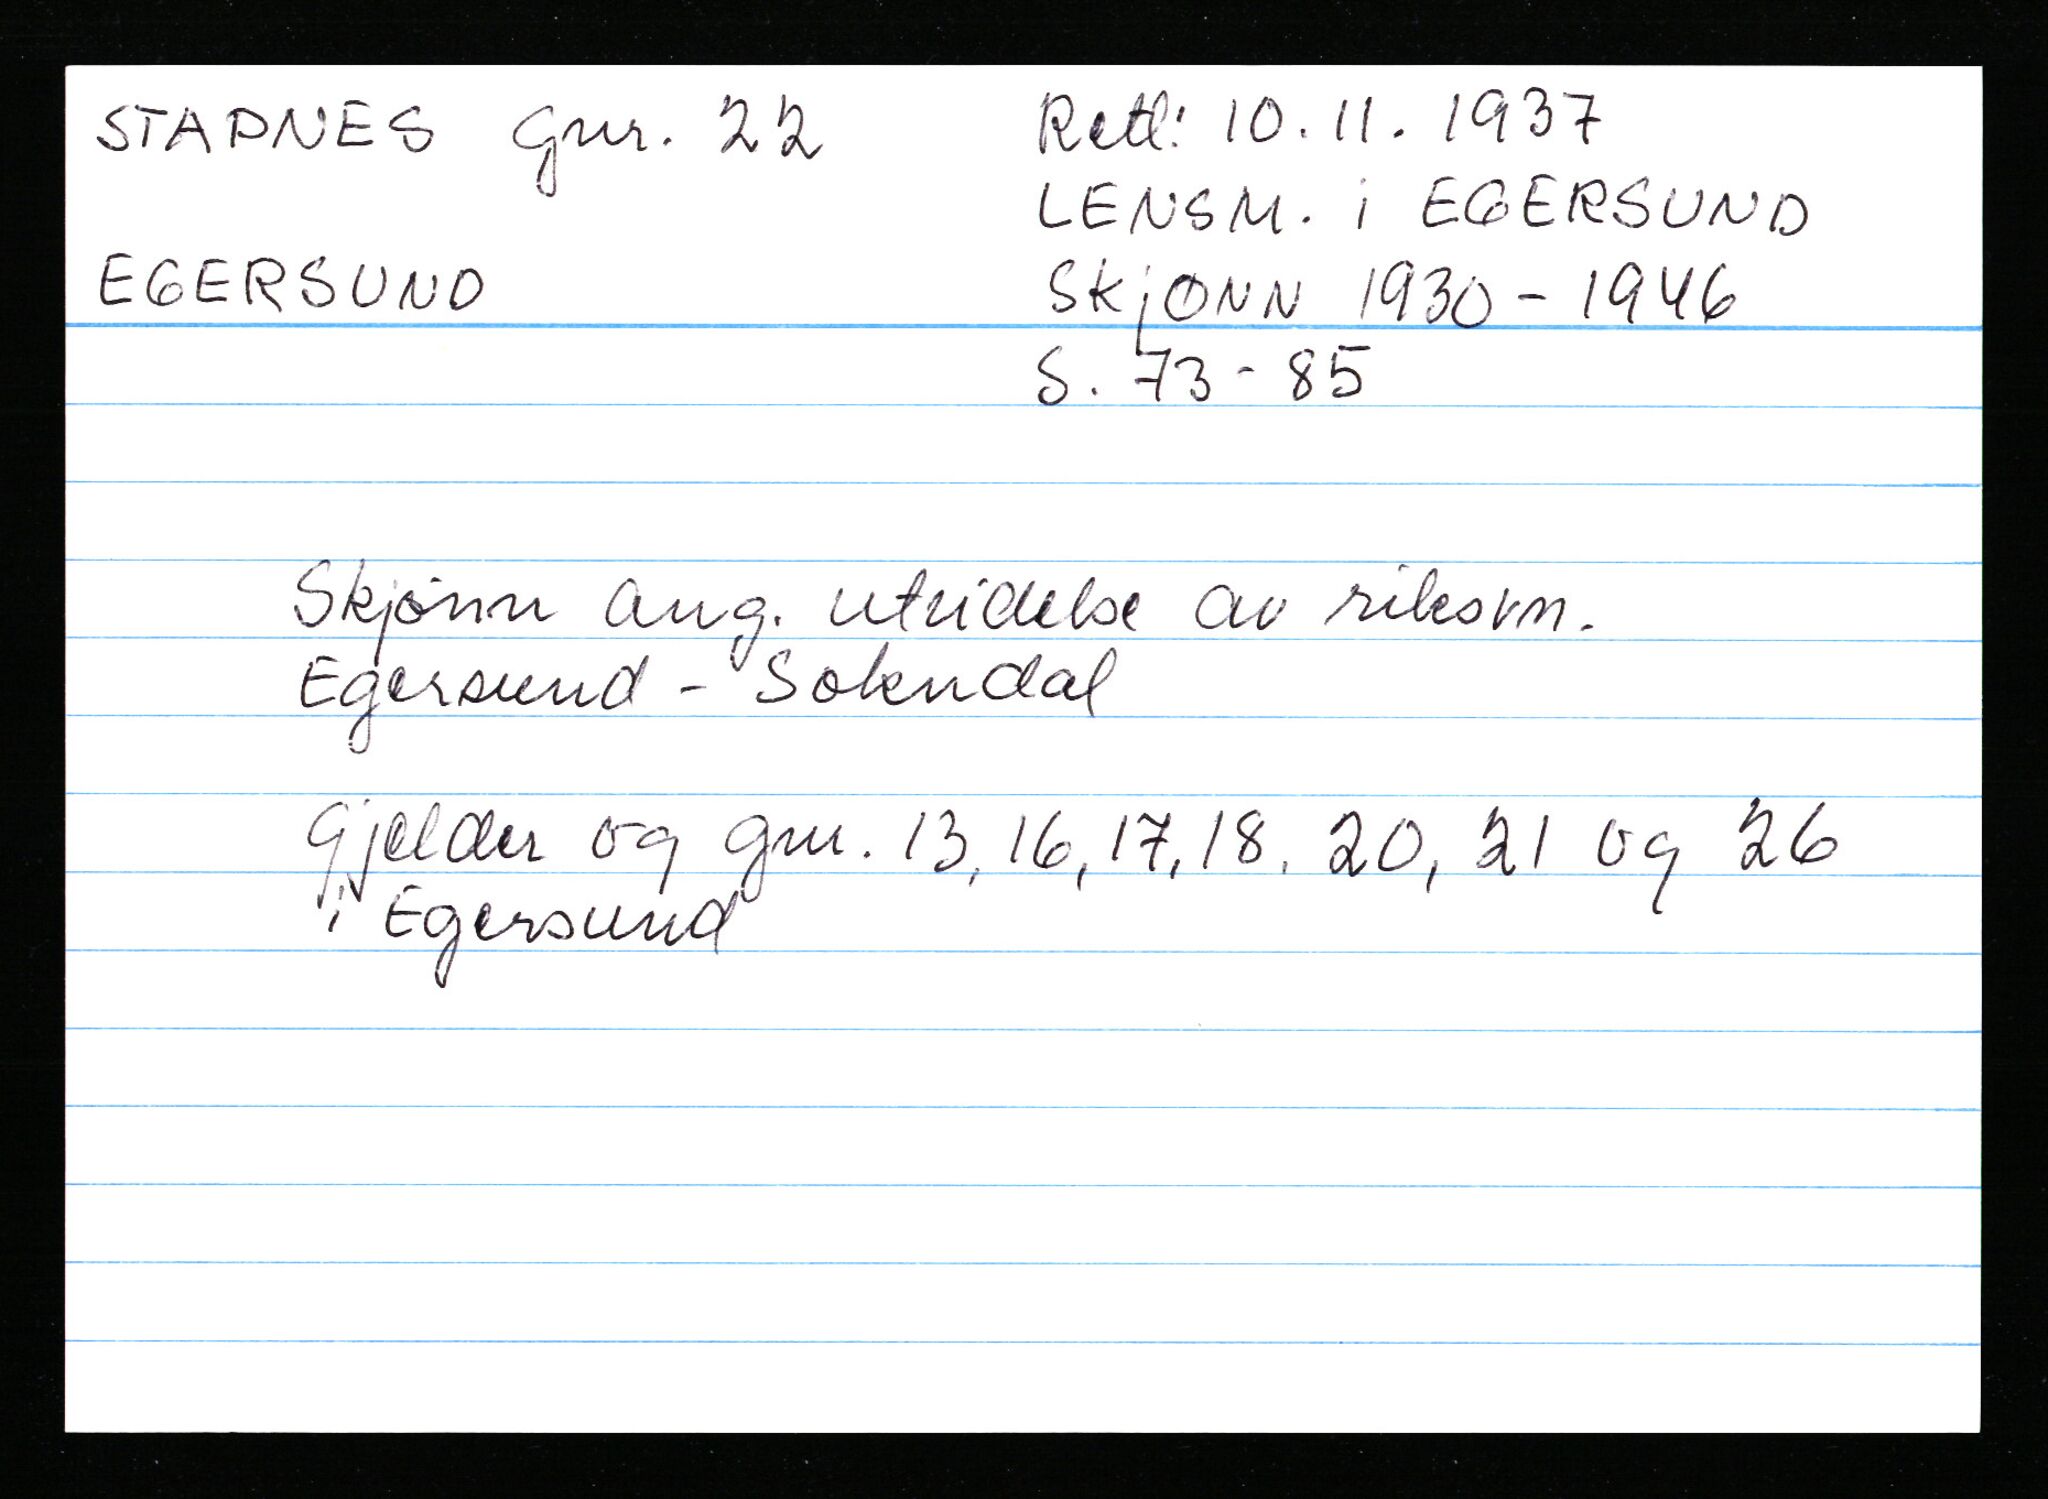 STAPNES gnr. 22
EGERSUND
Retl: 10.11.1937
LENSM. i EGERSUND
SKjØNN 1930-1946
S. 73-85
Skjønn ang. utvidelse av riksvn.
Egersund - Sokndal
Gjelder og gnr. 13, 16, 17, 18, 20, 21 og 26
i Egersund